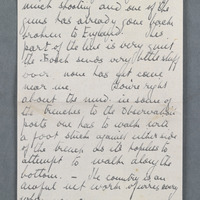 much shooting and one of the
guns has already gone back
broken to England. This
part of the line is very quiet
the Bosch sends very little stuff
over none has yet come
near me. You're right
about the mud. in some of
the trenches to the Observation
posts one has to walk with
a foot stuck against either side
of the trench as its hopeless to
attempt to walk along the
bottom. - The country is an
awful net work of wires every